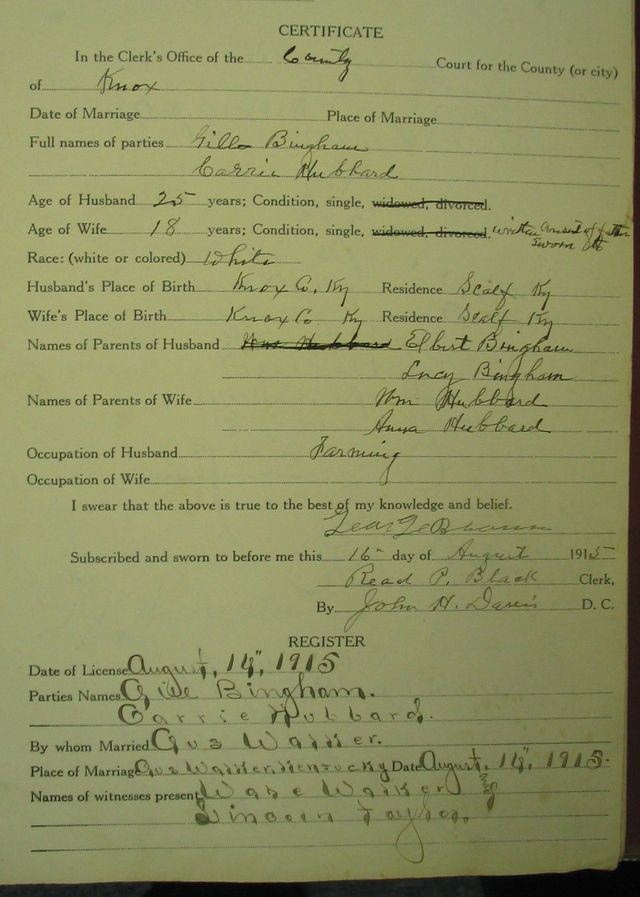 CERTIFICATE
In the Clerk's Office of the County Court for the County (or city)
of Knox
Date of Marriage Place of Marriage
Full names of parties Bingham
Carrie Hubbard
Age of Husband 25 years; Condition, single, widowed, divorced.
Age of Wife 18 years; Condition, single, widowed, divorced. written consent of father
sworn
Race: (white or colored) White
Husband's Place of Birth Knox Co, Ky Residence Scalf Ky
Wife's Place of Birth Knox Co Ky Residence Scalf Ky
Names of Parents of Husband Wm Hubbard Elbert Bingham
Lucy Bingham
Names of Parents of Wife Wm Hubbard
Anna Hubbard
Occupation of Husband Farming
Occupation of Wife
I swear that the above is true to the best of my knowledge and belief.
Subscribed and sworn to before me this 16" day of August 1915
Read P. Black Clerk,
By John H. Davis D. C.
REGISTER
Date of License August, 14", 1915
Parties Names Bingham.
Carrie Hubbard.
By whom Married Gus Walker.
Place of Marriage Gus Walker, Kentucky Date August, 14", 1915.
Names of witnesses present Wase Walker
Taylor.